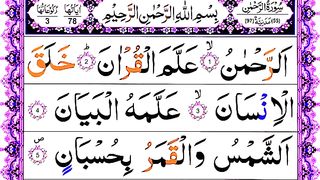 سُورَةُ الرَّحْمٰنِ بِسْمِ اللّٰهِ الرَّحْمٰنِ الرَّحِيْمِ اٰيَاتُهَا 78 رُكُوْعَاتُهَا 3
اَلرَّحْمٰنُ ۙ﴿1﴾ عَلَّمَ الْقُرْاٰنَ ؕ﴿2﴾ خَلَقَ
الْاِنْسَانَ ۙ﴿3﴾ عَلَّمَهُ الْبَيَانَ ﴿4﴾
اَلشَّمْسُ وَالْقَمَرُ بِحُسْبَانٍ ۪﴿5﴾